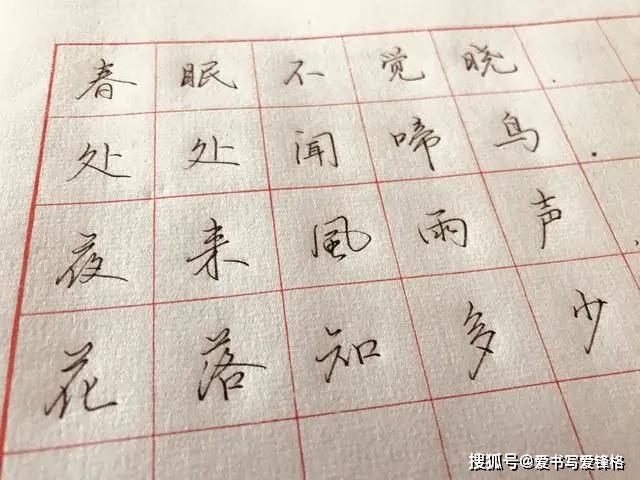 春眠不觉晓.
处处闻啼鸟.
夜来風雨声.
花落知多少
搜狐号@爱书写爱锋格